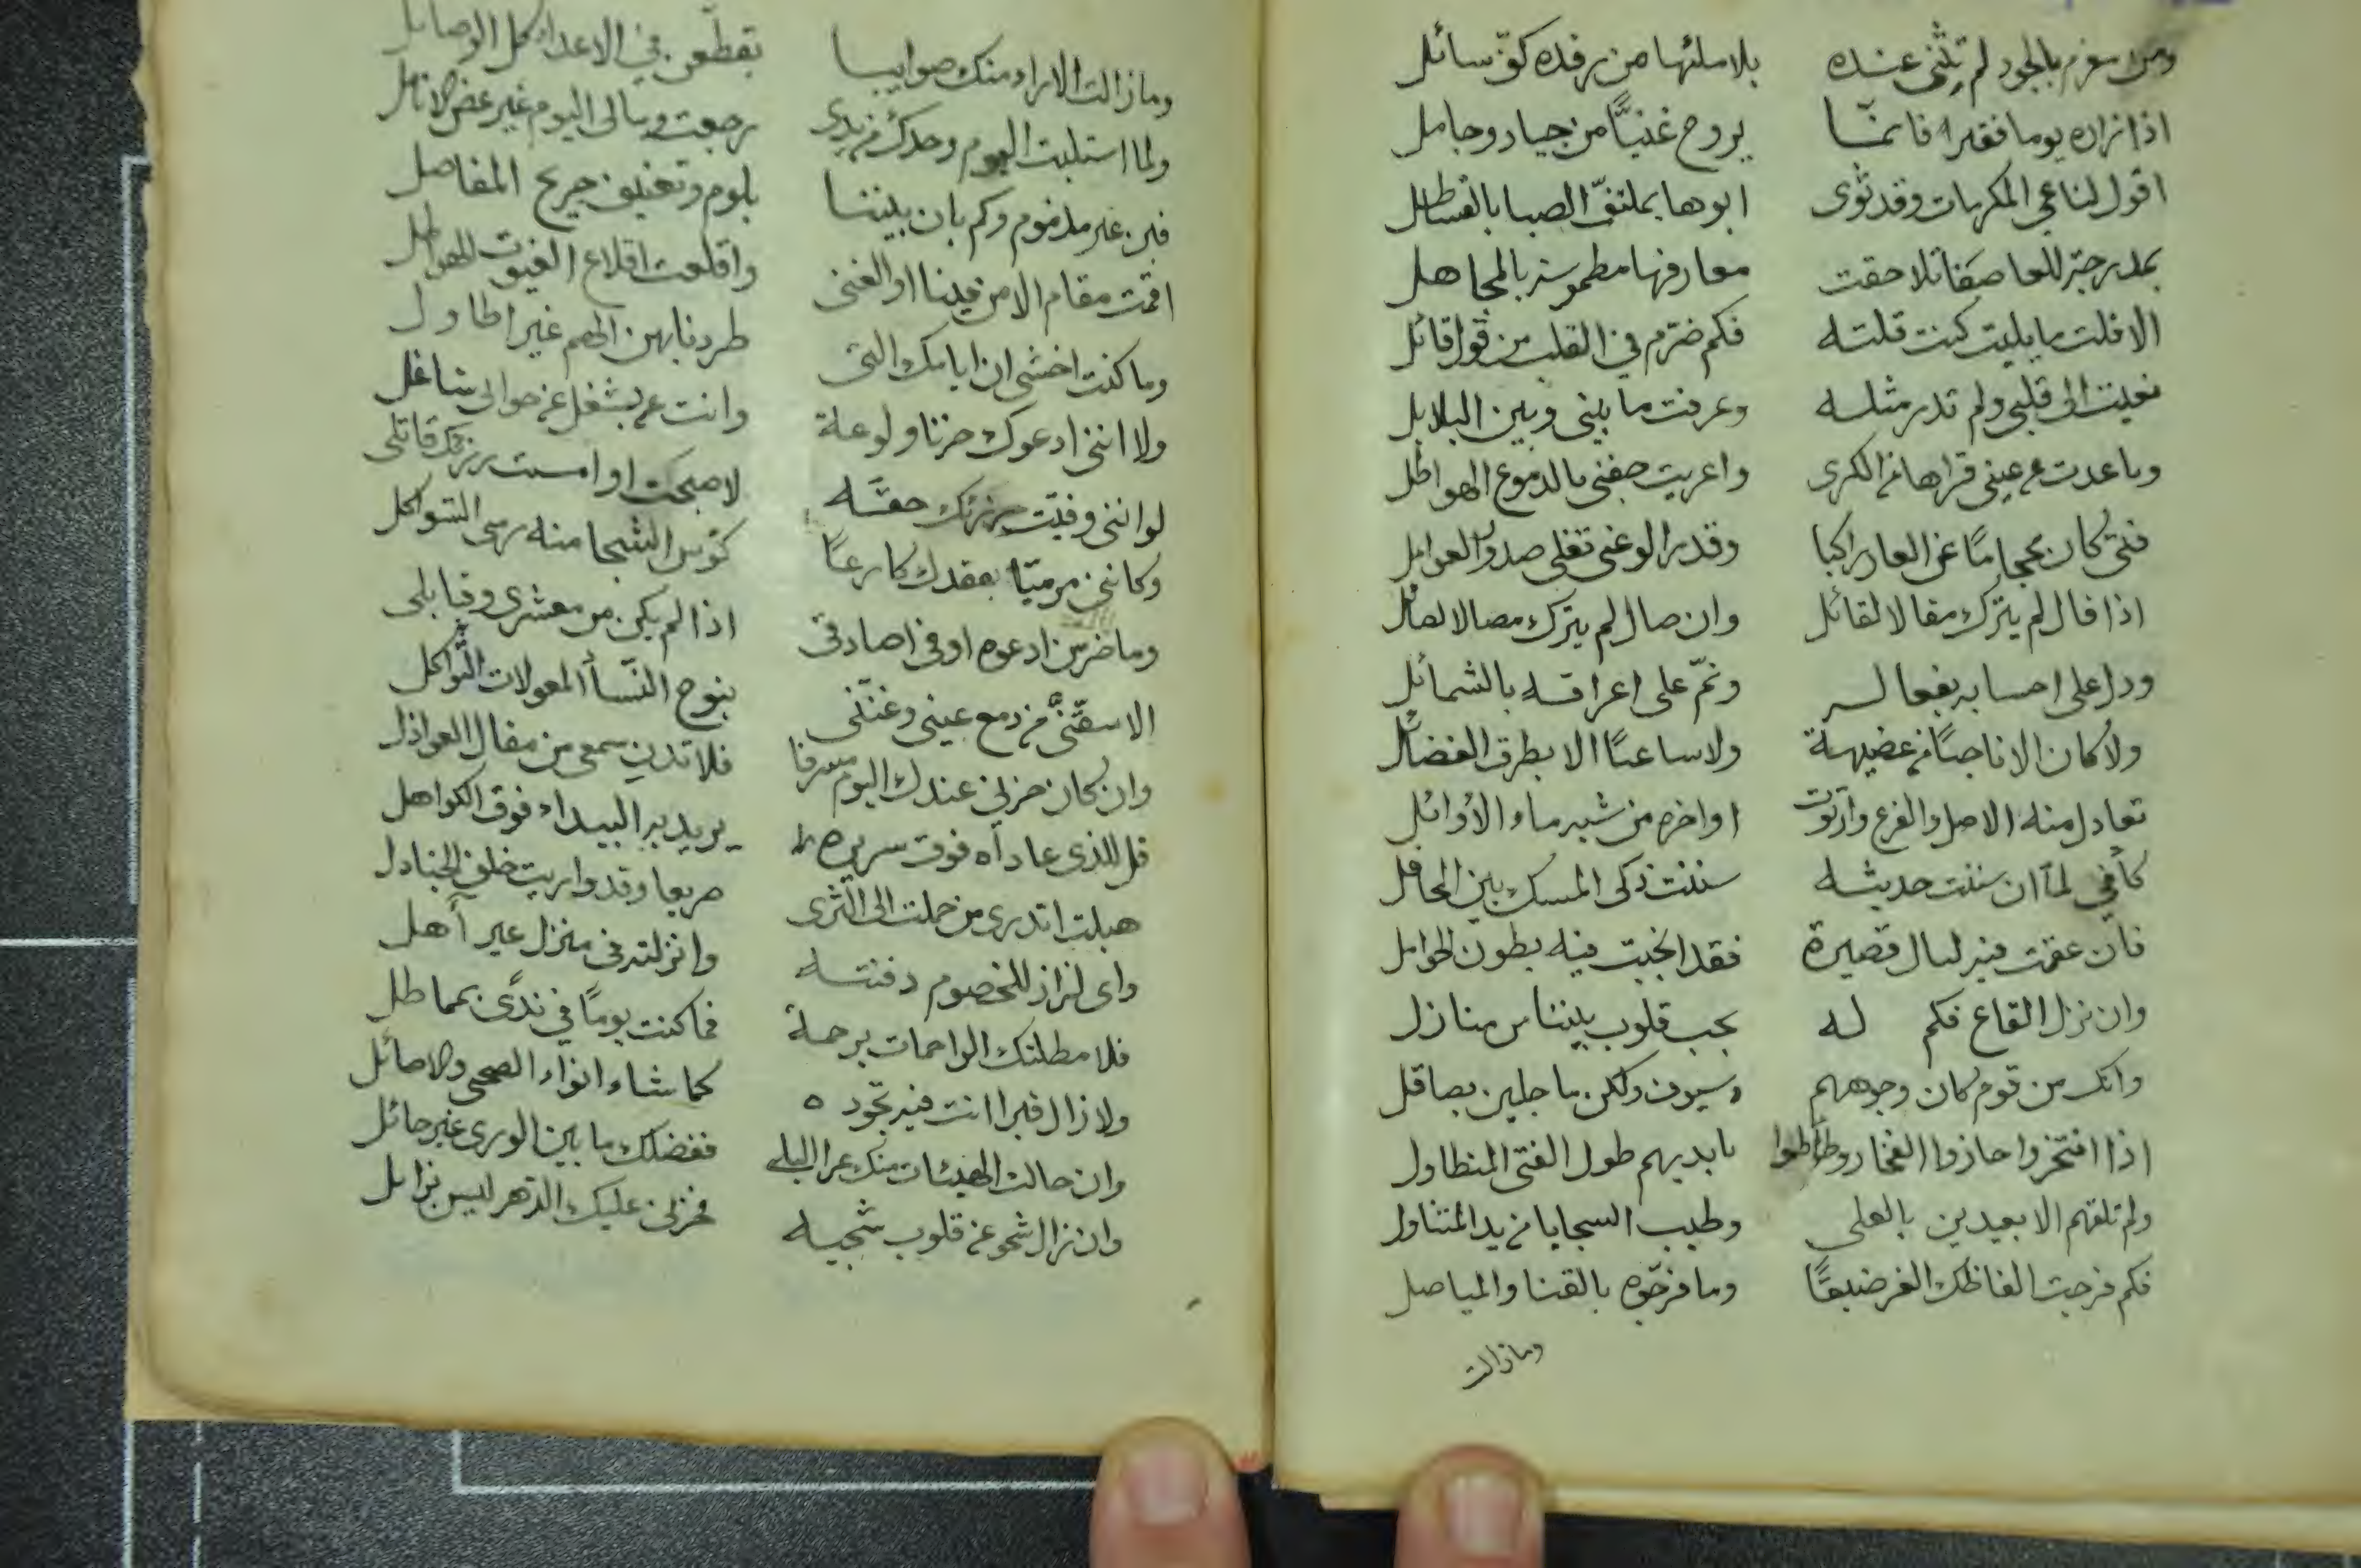 ومن مغرم بالجود لم تثنى عنده بلا ملئها من رفده كفّ سائل
اذا زاره يوما فقيرا فانمّا يروح غنيًّا من جياد وجامل
اقول لناعي المكرمات وقد ثوى ابوها بملتفّ الصبا بالقساطل
بمدرجة للعاصفات تلاحقت معارفها مطموسة بالمجاهل
الا قلت ما يليت كنت قلته فكم ضرّم في القلب من قول قائل
نعيت الى قلبي ولم تدر مثله وعرفت ما بيني وبين البلابل
وباعدت عن عيني قراها من الكرى واعريت جفني بالدموع الهواطل
فتى كان محجامًا عن العار راكبا وقدر الوغى تغلى صدور العوامل
اذا قال لم يترك مقالا لقائل وان صال لم يترك مصالا لصائل
ودل على احسابه بفعاله ونمّ على اعراقه بالشمائل
ولا كان الا ناجيًا من عضيهة ولا ساعيًا الا بطرق الفضائل
تعادل منه الاصل والفرع وارتوت اواخره من شبه ماء الأوائل
كأني لما ان سننت حديثه سننت ذكى المسك بين المحافل
فان عقمت فيه ليال قصيرة فقد انجبت فيه بطون الحوامل
وان نزل القاع فكم له بجب قلوب بيننا من منازل
وانك من قوم كان وجوههم وسيوف ولكن ما جلين بصاقل
اذا افتخروا حازوا الفخار وطأطوا بايديهم طول الفتى المتطاول
ولم تلقهم الا بعيدين بالعلى وطيب السجايا من يد المتناول
فكم فرجت الفاظك الغر ضيقًا وما فرجّوه بالقنا والمياصل
وما زالت
وما زالت الاراء منك صوايبا تقطّعن في الاعداء كل الوصايل
ولما استلبت اليوم وحدك من يدى رجعت ومالى اليوم غير عض الانامل
فبن غير مذموم وكم بان بيننا بلوم وتعنيف جريح المفاصل
اقمت مقام الامن فينا او الغنى واقلعت اقلاع الغيوث الهواطل
وما كنت اخشى ان ايامك التى طردنا بهن الهم غير اطاول
ولا اننى ادعوك حزنا ولوعة وانت عن بشغل عن حوالى شاغل
لو اننى وفيّت رزئك حقّه لا صبحت او امست رزئك قاتلى
وكانني مرميّا بفقدك كارعًا كؤس الشجا منه رمى التواكل
وما ضر من ادعوه اوفى اصادقى اذا لم يكن من معشرى وقبايلى
الا سقّنيّ من دمع عيني وغنّنى بنوح النّسأ المعولات الثّواكل
وان كان حزني عندك اليوم مسرفا فلا تدن سمعى من مقال العواذل
قل للذى عاداه فوق سريره يريد به البيداء فوق الكواهل
هبلت اتدرى من حملت الى الثرى صريعا وقد واريت خلف الجنادل
واى لزاز للخصوم دفنته وانزلته فى منزل غير أهل
فلا مطلتك الراحمات برحمة فما كنت يومًا في ندًى بمماطل
ولا زال قبرا انت فيه تجوده كما شاء انواء الضحى والاصائل
وان حالت الهيئات منك عرا البلى ففضلك ما بين الورى غير حائل
وان نزال شجو عن قلوب شجيه فحزنى عليك الدّهر ليس بزايل